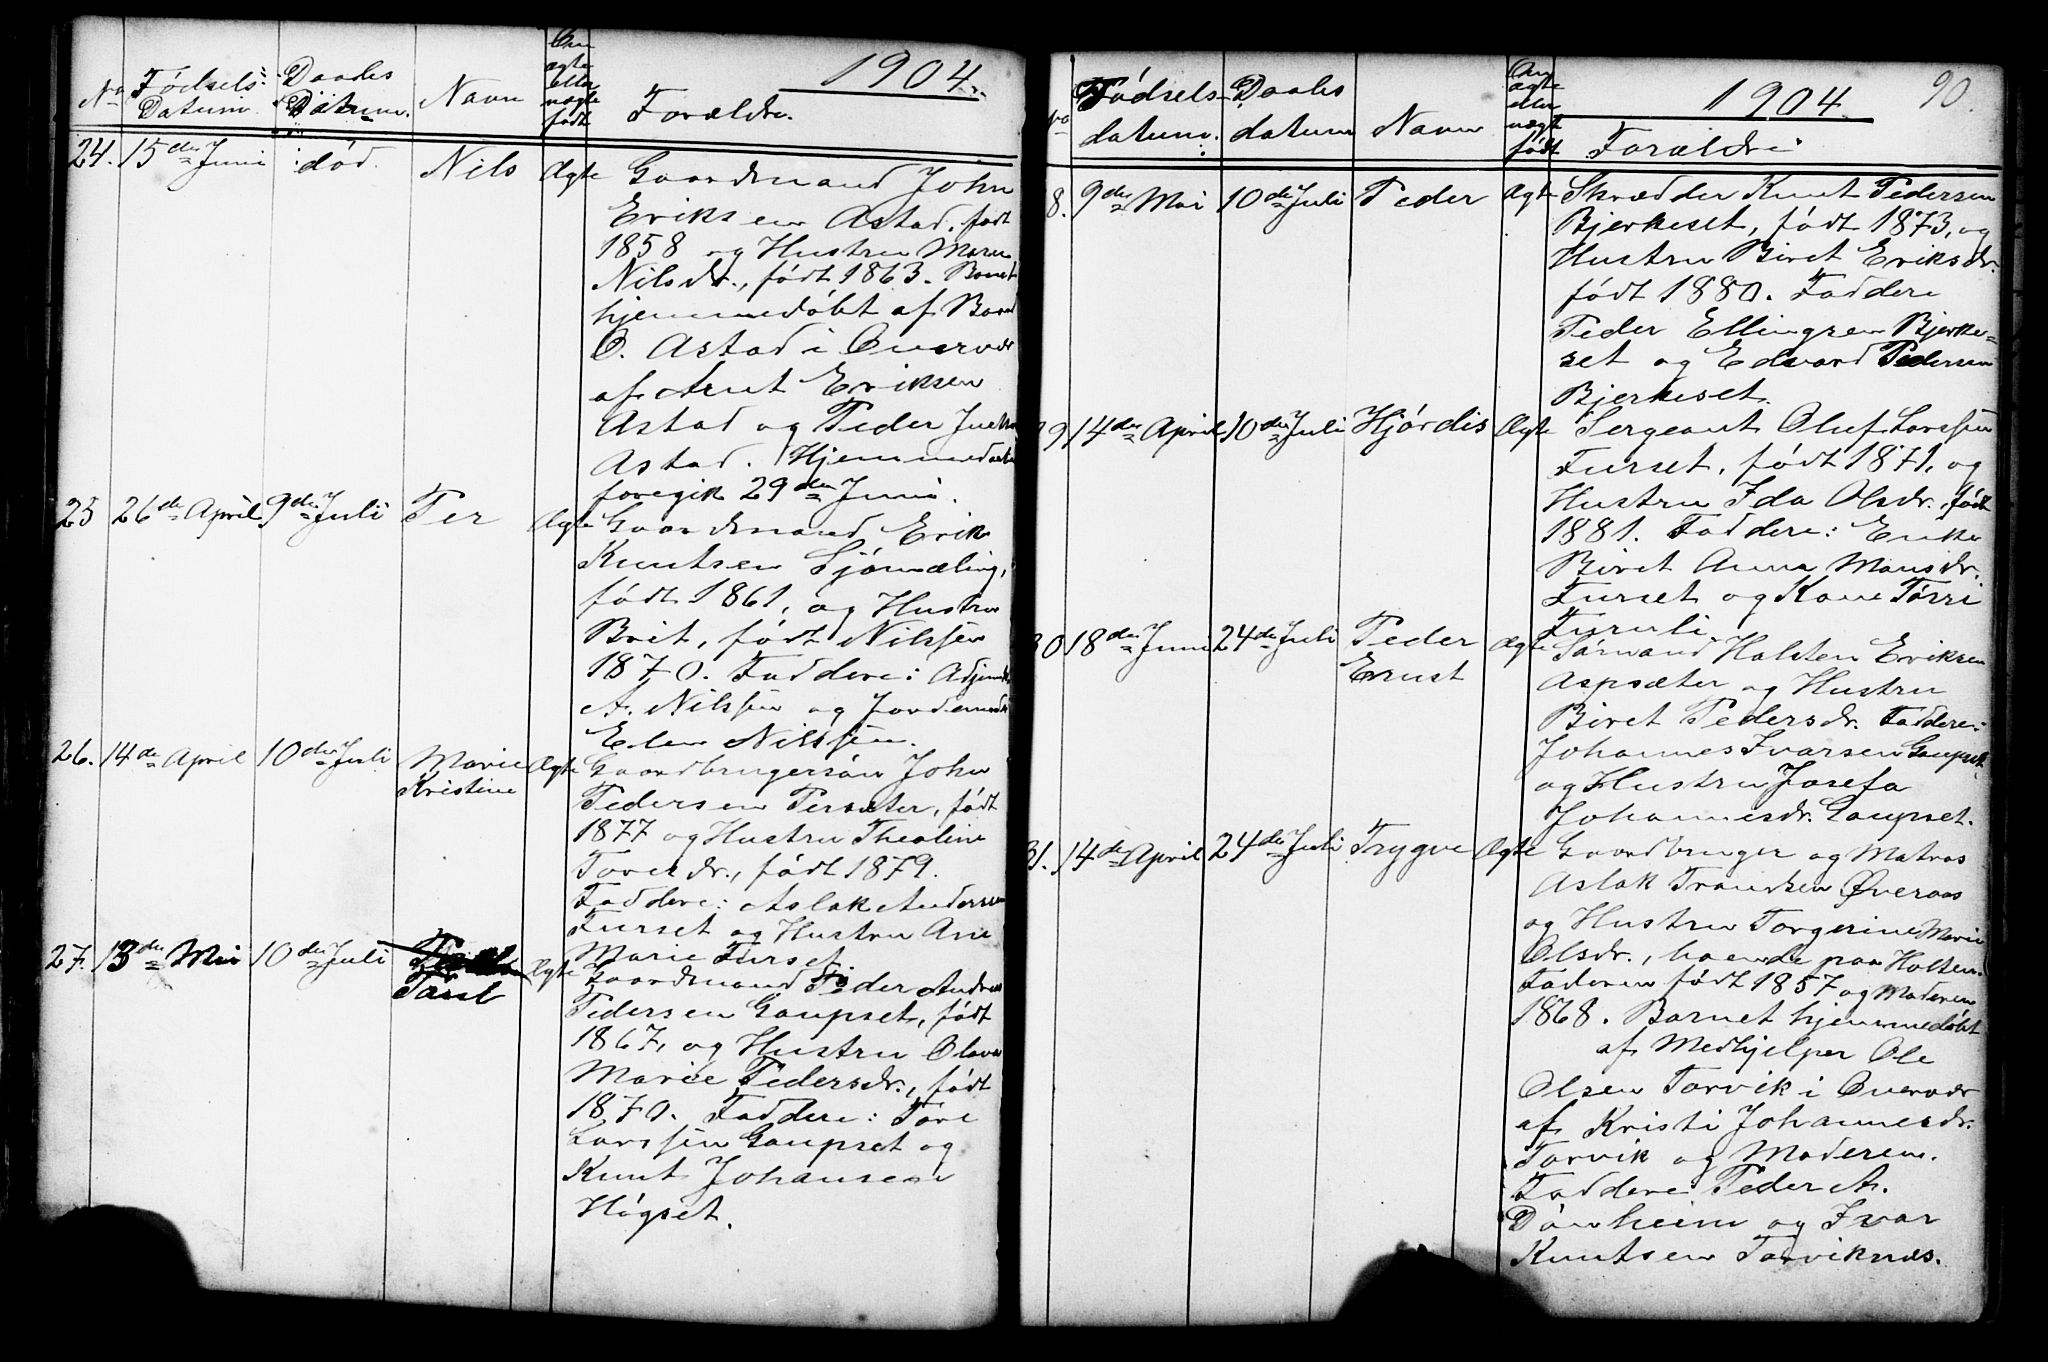 1904.
No Fødsels Datum Daabs Datum. Navn Om ægte eller uægte født Forældre.
24. 15de Juni død. Nils Ægte Gaardmand John
Eriksen Astad, født
1858 og Hustru Maren
Nilsdr., født 1863. Barnet
hjemmedøbt af Baard
O. Astad i Overvær
af Arnt Eriksen
Astad og Peder
Astad. Hjemmedaaben
foregik 29de Juni.
25 26de April 9de Juli Per Ægte Gaardmand Erik
Knutsen Sjømæling,
født 1861, og Hustru
Brit, født Nilssen
1870. Faddere: Adjunkt
A. Nilssen og Jordemoder
Elen Nilssen.
26. 14de April 10de Juli Marie Ægte Gaardbrugersøn John
Kristine Pedersen Persæter, født
1877 og Hustru Thealine
Toresdr., født 1879.
Faddere: Aslak Andersen
Furset og Hustru Ane
Marie Furset
27. 13de Mai 10de Juli Ægte Gaardmand Peder Andreas
Taral Pedersen Gaupset, født
1867, og Hustru Olava
Marie Pedersdr., født
1870. Faddere: Tore
Larssen Gaupset og
Knut Johansen
Høgset.
1904. 90.
No Fødsels- datum. Daabs datum Navn Om ægte eller uægte født Forældre
8. 9de Mai 10de Juli Peder Ægte Skrædder Knut Pedersen
Bjerkeset, født 1873, og
Hustru Biret Eriksdr.
født 1880. Faddere
Peder Ellingsen Bjerke-
set og Edvard Pedersen
Bjerkeset.
29 14de April 10de Juli Hjørdis Ægte Sergeant Oluf Larssen
Furset, født 1871, og
Hustru Ida Olsdr. født
1881. Faddere: Enke
Biret Anna Monsdr.
Furset og Kone Tørri
Furuli.
30 18de Juni 24de Juli Peder Ægte Sørmand Halsten Eriksen
Ernst Aspsæter og Hustru
Biret Pedersdr. Faddere:
Johannes Ivarsen Gaupset
og Hustru Josefa
Johannesdr. Gaupset.
31. 14de April 24de Juli Trygve Ægte Gaardbruger og Matros
Aslak Trondsen Øveraas
og Hustru Torgerine Marie
Olsdr., boende paa Holten.
Faderen født 1857 og Moderen
1868. Barnet hjemmedøbt
af Medhjelper Ole
Olsen Torvik i Overvær
af Kristi Johannesdr.
Torvik og Moderen.
Faddere Peder A.
Dönheim og Ivar
Knutsen Torviknæs.